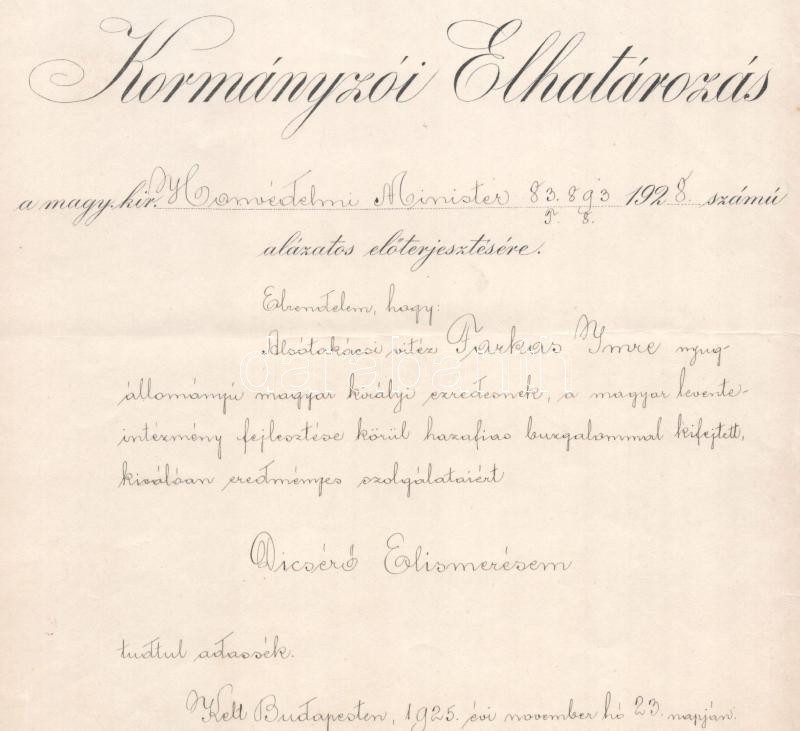 Kormányzói Elhatározás
a magy. kir. Honvédelmi Minister 83.893 1928. számú
T. 8.
alázatos előterjesztésére.
Elrendelem, hogy:
Alsótakácsi vitéz Farkas Ymre nyug-
állományú magyar királyi ezredesnek, a magyar levente-
intézmény fejlesztése körül hazafias buzgalommal kifejtett,
kiválóan eredményes szolgálataiért
Dicsérő Elismerésem
tudtul adassék.
Kelt Budapesten, 1925. évi november hó 23. napján.
darabanth